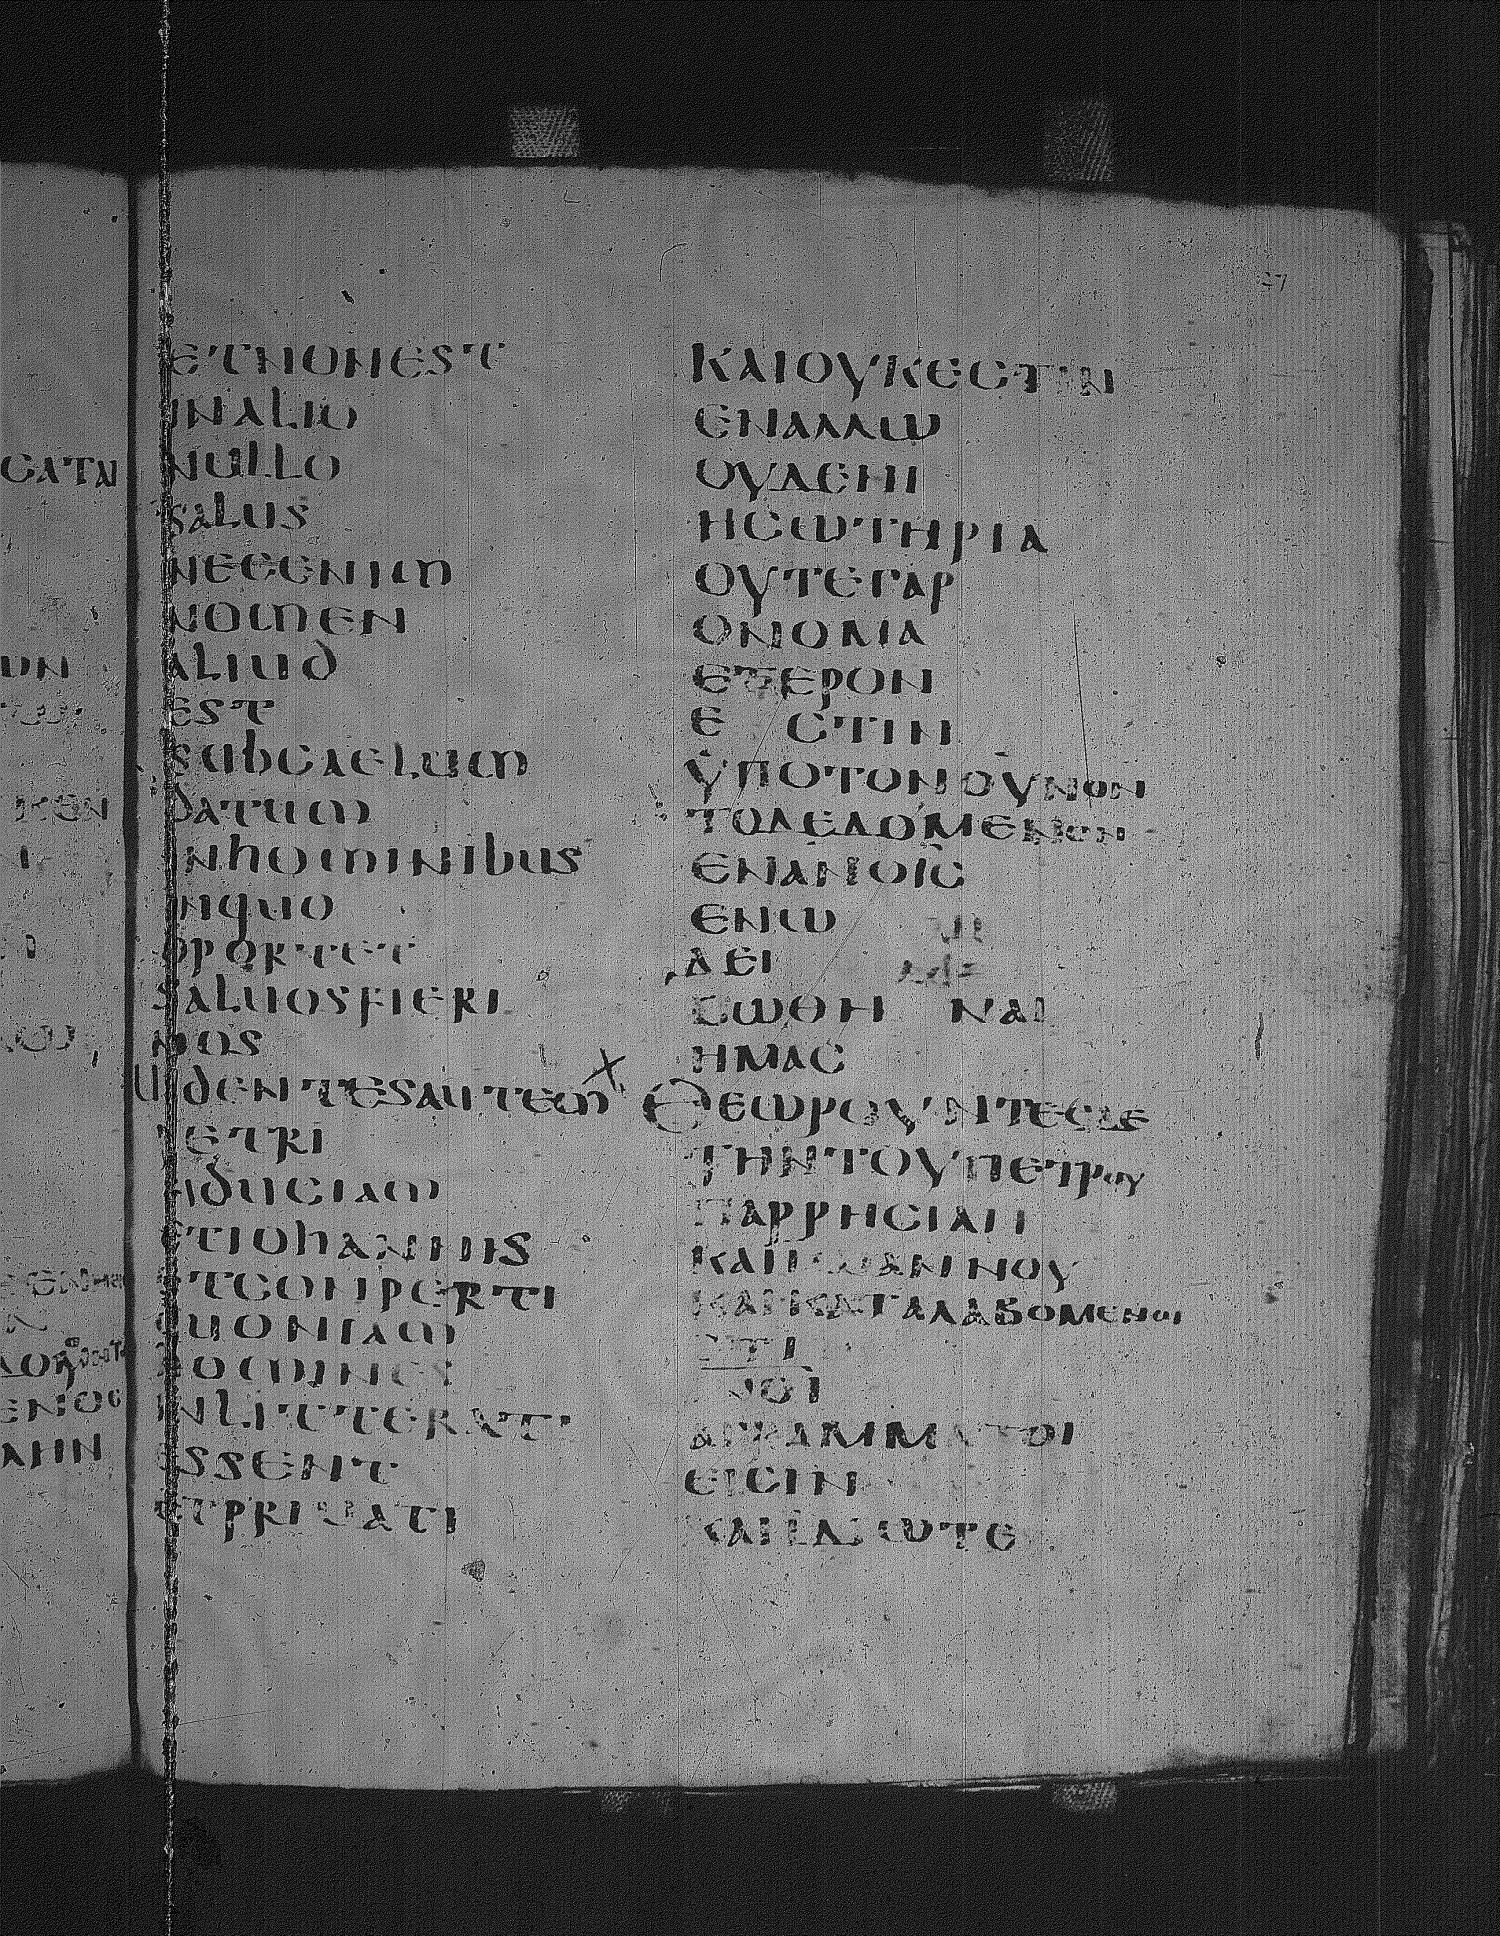 ETNONEST
INALIO
NULLO
SALUS
NECENIM
NOMEN
ALIUD
EST
SUBCAELUM
DATUM
INHOMINIBUS
INQUO
OPORTET
SALUOSFIERI
NOS
UIDENTESAUTEM
PETRI
FIDUCIAM
ETIOHANNIS
ETCONPERTI
QUONIAM
HOMINES
INLITTERATI
ESSENT
ETPRIUATI
ΚΑΙΟΥΚΕCΤΙΝ
ΕΝΑΛΛΩ
ΟΥΔΕΝΙ
ΗCΩΤΗΡΙΑ
ΟΥΤΕΓΑΡ
ΟΝΟΜΑ
ΕΤΕΡΟΝ
Ε CΤΙΝ
ΫΠΟΤΟΝΟΥΝΟΝ
ΤΟΔΕΔΟΜΕΝΟΝ
ΕΝΑΝΟΙC
ΕΝΩ
ΔΕΙ
CΩΘΗ ΝΑΙ
ΗΜΑC
ΘΕΩΡΟΥΝΤΕCΔΕ
ΤΗΝΤΟΥΠΕΤΡΟΥ
ΠΑΡΡΗCΙΑΝ
ΚΑΙΙΩΑΝΝΟΥ
ΚΑΙΚΑΤΑΛΑΒΟΜΕΝΟΙ
ΟΤΙ
ΑΝΟΙ
ΑΓΡΑΜΜΑΤΟΙ
ΕΙCΙΝ
ΚΑΙΙΔΙΩΤΕ